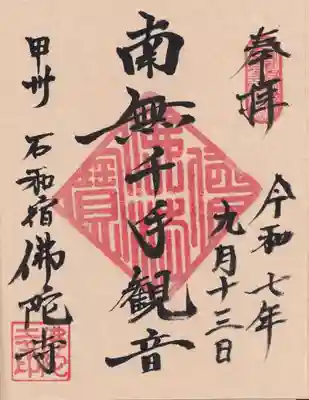 奉拝
令和七年
九月十三日
南無千手観音
甲州 石和宿佛陀寺
佛法僧寳